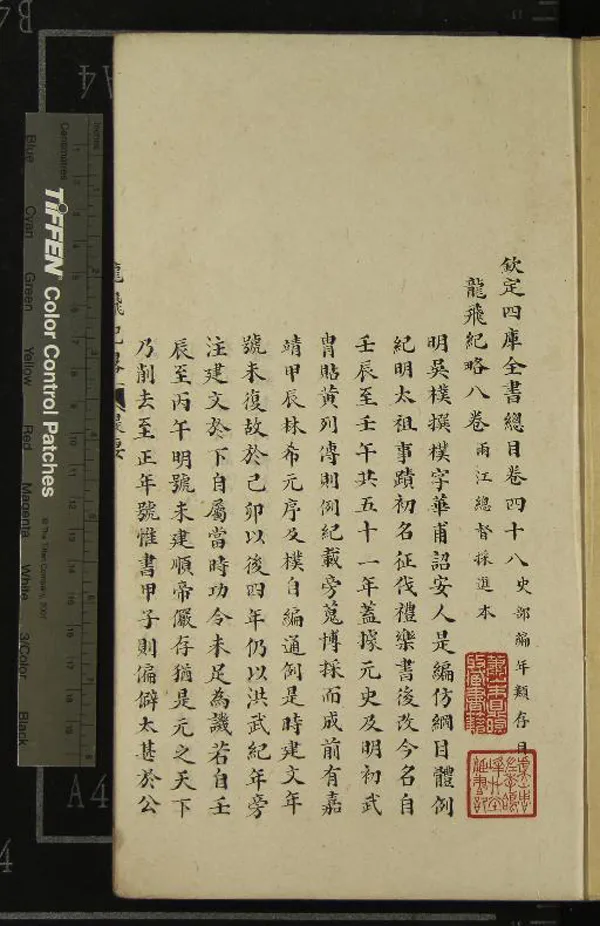 欽定四庫全書總目卷四十八 史部編年類存目
龍飛紀略八卷 兩江總督採進本
明吳樸撰樸字華甫詔安人是編仿綱目體例
紀明太祖事蹟初名征伐禮樂書後改今名自
壬辰至壬午共五十一年蓋據元史及明初武
胄貼黃列傳則例紀載旁蒐博採而成前有嘉
靖甲辰林希元序及樸自編通例是時建文年
號未復故於己卯以後四年仍以洪武紀年旁
注建文於下自屬當時功令未足為譏若自壬
辰至丙午明號未建順帝儼存猶是元之天下
乃削去至正年號惟書甲子則偏僻太甚於公
TIFFEN Color Control Patches
© The Tiffen Company, 2007
Centimetres
Inches
Blue
Cyan
Green
Yellow
Red
Magenta
White
3/Color
Black
A4